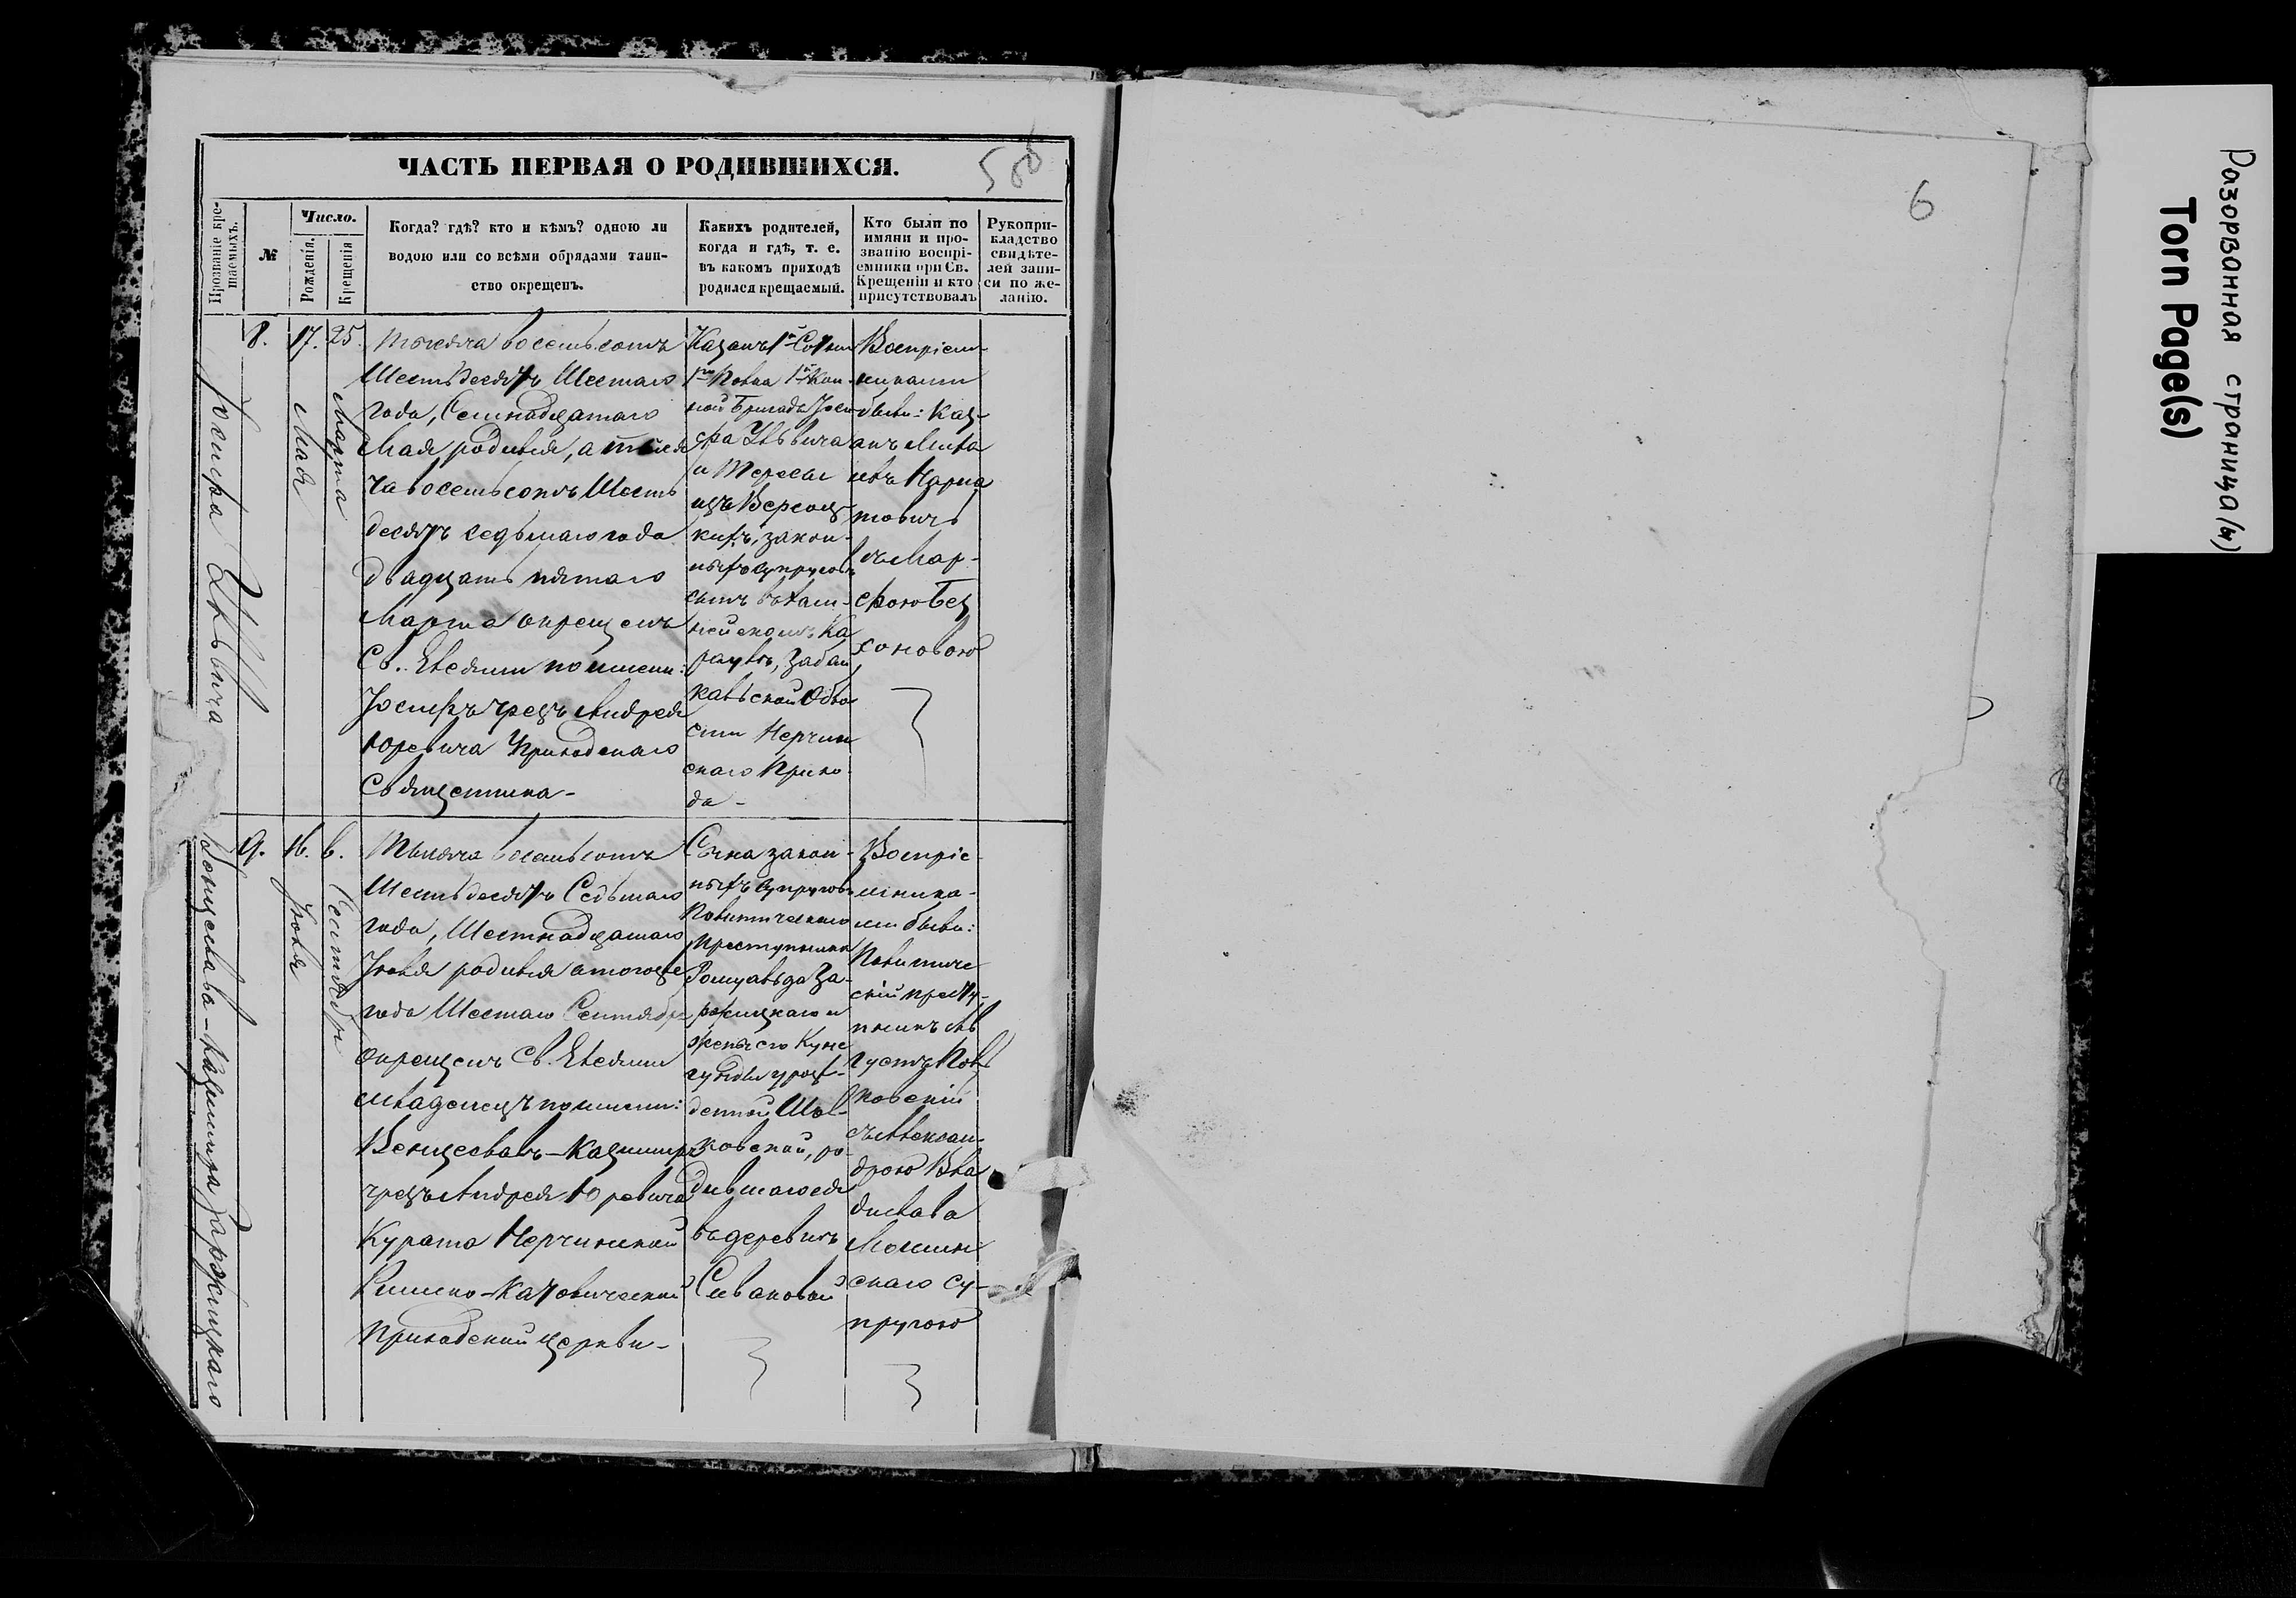 ЧАСТЬ ПЕРВАЯ О РОДИВШИХСЯ.
5 об
Прозваніе кре-
щаемыхъ.
№
Число.
Рожденія.
Крещенія
Когда? гдѣ? кто и кѣмъ? одною ли
водою или со всѣми обрядами таин-
ство окрещенъ.
Какихъ родителей,
когда и гдѣ, т. е.
въ какомъ приходѣ
родился крещаемый.
Кто были по
имяни и про-
званію воспрі-
емники при Св.
Крещеніи и кто
присутствовалъ
Рукопри-
кладство
свидѣте-
лей запи-
си по же-
ланію.
Іосифа
8.
17.
Мая
25.
Марта
Тысяча восемьсотъ
Шестьдесятъ Шестаго
года, Семнадцатаго
Мая родился, а тыся
ча восемьсотъ Шесть
десятъ седьмаго года
двадцать пятаго
Марта окрещенъ
Св. Елеями по имени:
Іосифъ чрезъ Андрея
Юревича Приходскаго
Священника-
Казакъ 1й Сотни
1го Полка 1й Кон-
ной Бригады Іоси
фа
и Тересы
изъ
кихъ, закон-
ныхъ супруговъ
сынъ въ Кам-
Ка
раулѣ, Забай
кальской Обла
сти Нерчин
скаго Прихо
да-
Воспріем-
никами
были: Каз-
акъ
товичъ
съ Мар-
фою Без
хоновою
Венцеслава-Казимира Заржицкаго
9.
16.
Іюля
6.
Сентября
Тысяча восемьсотъ
Шестьдесятъ Седьмаго
года, Шестнадцатаго
Іюля родился а тогоже
года Шестаго Сентября
окрещенъ Св. Елеями
младенецъ по имени:
Венцеславъ-Казимиръ
чрезъ Андрея Юревича
Курата Нерчинской
Римско-Католической
Приходской церкви-
Сына закон-
ныхъ супруговъ
Политическаго
преступника
Ромуальда За-
ржицкаго и
жены его Куне
гунды урож-
денной
ковской, ро-
дившагося
въ деревнѣ
Саваковой
Воспріе-
мника-
ми были:
Политиче
скій престу-
пникъ Ав
густъ
новскій
съ Алексан-
дрою Вла
дислава
скаго су-
пругою
6
Разорванная страница(ы)
Torn Page(s)